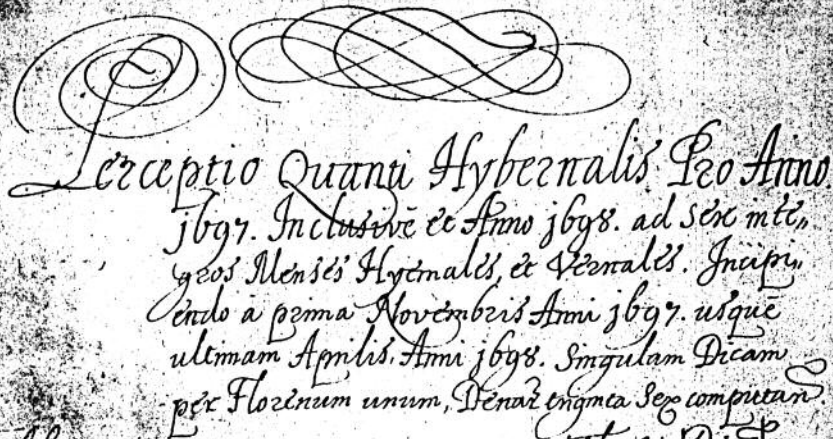 Perceptio Quanti Hybernalis Pro Anno
1697. Inclusivè et Anno 1698. ad sex inte„
gros Menses Hyemales, et Vernales. Incipi„
endo à prima Novembris Anni 1697. usquè
ultimam Aprilis. Anni 1698. Singulam Dicam
per Florenum unum, Denar triginta Sex computan.